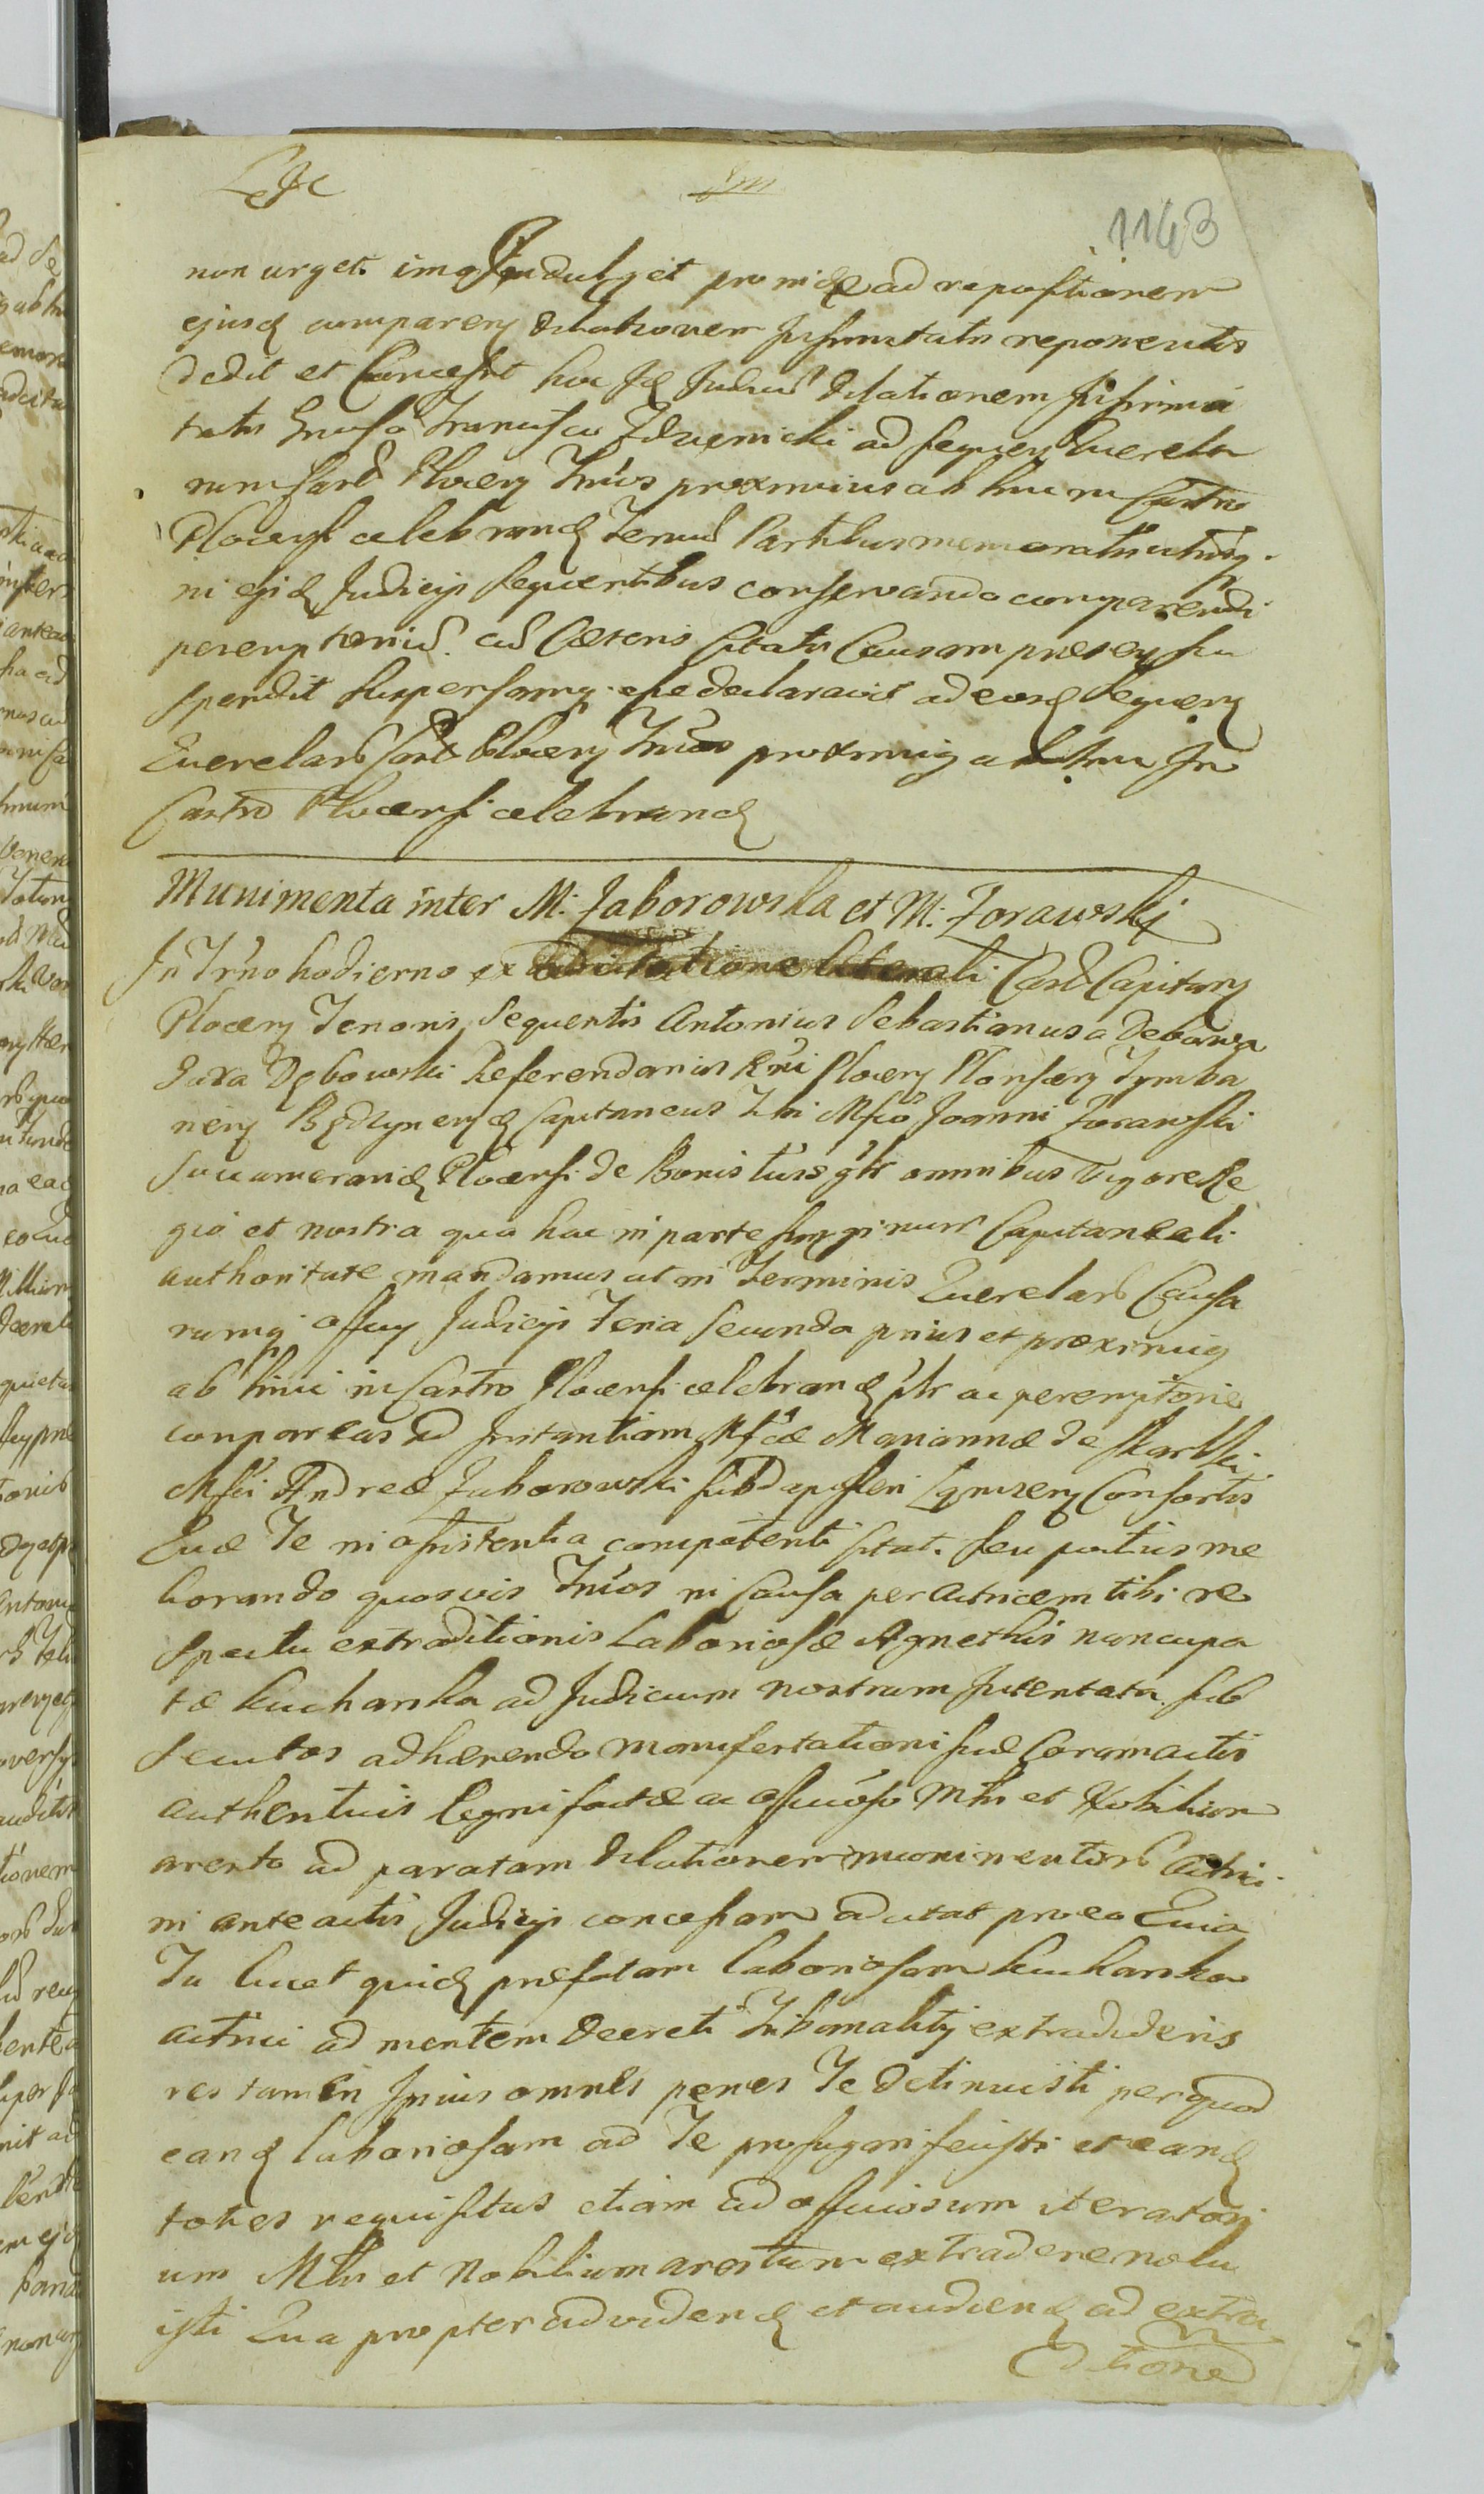 1143
non urget. imo Indulget proinde ad repositionem
ejusd comparen Dilationem Infirmitatis reponentis
dedit et Concessit hoc Id Judiciu Dilationem Infirmi
tatis Gnoso Francisco ad sequen Querela
rum Card Plocen Tnos proximius ab hinc in Castro
Plocensi celebrand Termi Partibus memoratis utrisq.
in ejsd Judicys sequentibus conservando comparendi
peremptoriu. cu Cæteris Citatis Causam præsen su
spendit suspensamq. esse declaravit ad eosd sequen
Querelaru Card Plocen Tnos proximiq ab hinc In
Castro Plocensi celebrand
Munimenta inter M: Zaborowska et M: Zorawski
In Trno hodierno ex Citatione literali Card Capitan
Plocen Tenoris Sequentis Antonius Sebastianus a Debowa
Gura Dębowski Referendarius Rni Plocen Plonscen Tymba
nen Bodzynen Capitaneus Tibi Mfco Joanni Zorawski
Succamerarid Plocensi de Bonis tuis gtr omnibus Vigore Re
gia et nostra qua hac in parte fungimur Capitaneali
authoritate mandamus ut in Terminis Querelaru Causa
rumq officy Judicys Feria Secunda prius et proximiq
ab hinc in Castro Plocensi celebrand ptr ac peremptorie
compareas ad Instantiam Mfcæ Mariannæ de Skarbki
Mfci Andreæ Zaborowski Subdapiferi Consortis
Quæ Te in assistentia competenti citat. seu potius me
liorando quosvis Tnos in Causa per Actricem tibi re
spectu extraditionis Laboriosæ Agnethis nuncupa
tæ Kucharska ad Judicium nostrum Intentata sub
secutos adhærendo manifestationi suæ Coram actis
authenticis Regni factæ ac officioso Mtri et Nobilium
aresto ad paratam Dilationem munimentoru Actrici
in anteactis Judicys concessam adcitat pro eo Quia
Tu licet quid præfatam Laboriosam Kucharska
actrici ad mentem Decreti Tribunality extradideris
res tamen Ipsius omnes penes Te detinuisti per quod
eand laboriosam ad Te profugari fecisti et eand
toties requisitus etiam ad officiosum iteratory
um Mtri et Nobilium arestum extradere nolu
isti Qua propter ad videnɖ et audienɖ ad extra
ditione